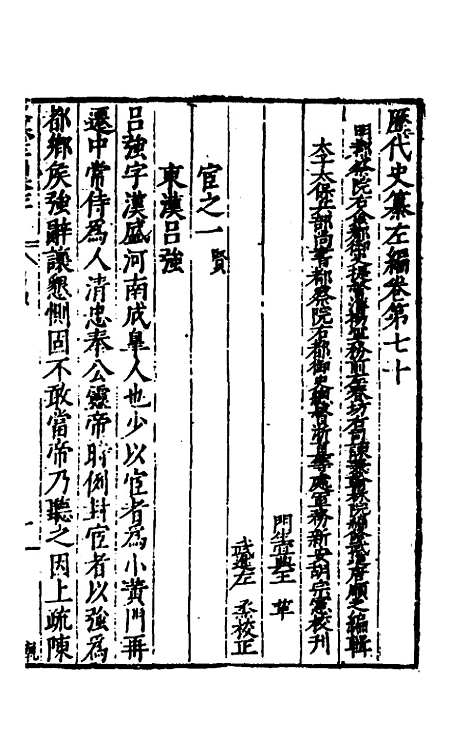 歷代史纂左編卷第七十
明都察院右僉都御史提督淮揚軍務前右春坊右司諫兼翰林院編修武進唐順之編輯
太子太保兵部尚書都察院右都御史總督浙直等處軍務新安胡宗憲校刊
門生 革
武進左烝校正
宦之一賢
東漢呂強
呂強字漢盛河南成皋人也少以宦者為小黃門再
遷中常侍為人清忠奉公靈帝時例封宦者以強為
都鄉侯強辭讓懇惻固不敢當帝乃聽之因上疏陳